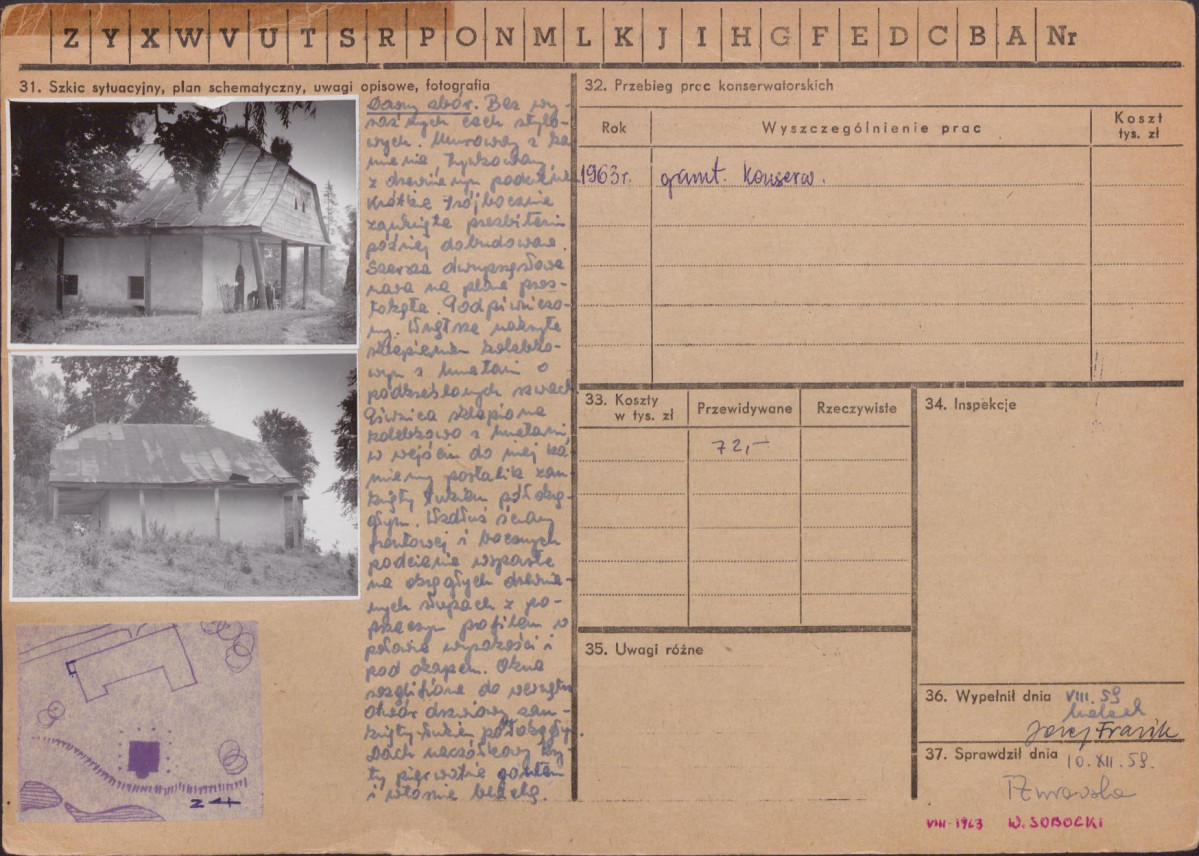 Z Y X W V U T S R P O N M L K J I H G F E D C B A Nr
31. Szkic sytuacyjny, plan schematyczny, uwagi opisowe, fotografia
Dawny zbór. Bez wy-
raźnych cech stylo-
wych. Murowany z ka
mienia tynkowany,
z drewnianym podcieniem
Krótkie trójbocznie
zamknięte prezbiterium
później dobudowane.
Szersza dwuprzęsłowa
nawa na planie pros-
tokąta. Podpiwniczo-
ny. Wnętrze nakryte
sklepieniem kolebko-
wym z lunetami o
podkreślonych szwach
Piwnica sklepiona
kolebkowo z lunetami,
w wejściu do niej ka
mienny portalik zam
knięty łukiem półokrą-
głym. Wzdłuż ściany
frontowej i bocznych
podcienie wsparte
na okrągłych drewnia-
nych słupach z po-
przecznym profilem w
połowie wysokości i
pod okapem. Okna
rozglifione do wewnątrz
Otwór drzwiowy zam-
knięty łukiem półokrągły
Dach naczółkowy kry-
ty pierwotnie gontem
i
32. Przebieg prac konserwatorskich
Rok
Wyszczególnienie prac
Koszt
tys. zł
1963r. gramt. Konserw.
33. Koszty
w tys. zł
Przewidywane
Rzeczywiste
72,-
34. Inspekcje
35. Uwagi różne
36. Wypełnił dnia VIII. 59
Józef Frazik
37. Sprawdził dnia 10.XII.59.
VIII-1963 W. SOBOCKI